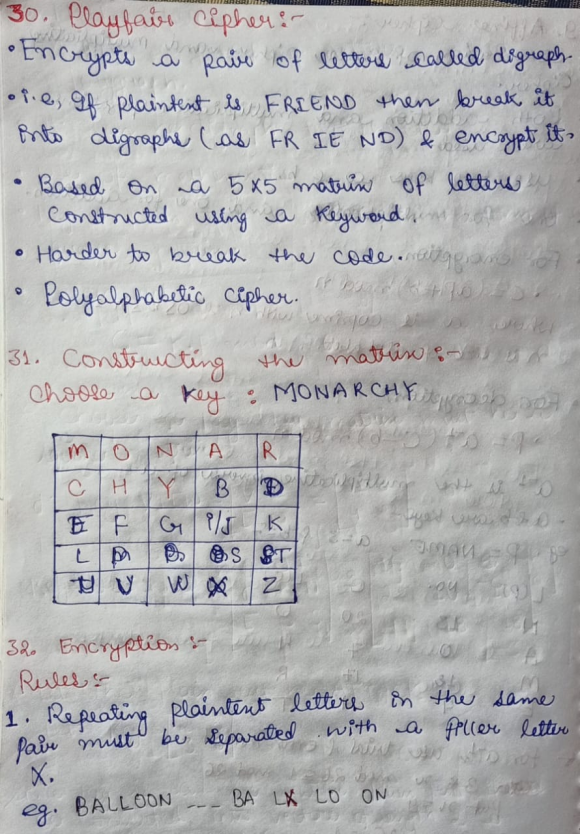 30. Playfair Cipher :-
• Encrypts a pair of letters called digraph.
• i.e, If plaintext is FRIEND then break it
into digraphs (as FR IE ND) & encrypt it.
• Based on a 5x5 matrix of letters
constructed using a keyword.
• Harder to break the code.
• Polyalphabetic cipher.
31. Constructing the matrix :-
Choose a key : MONARCHY
M O N A R
C H Y B D
E F G I/J K
L P Q S T
U V W X Z
32. Encryption :-
Rules :-
1. Repeating plaintext letters in the same
pair must be separated with a filler letter
X.
eg. BALLOON --- BA LX LO ON